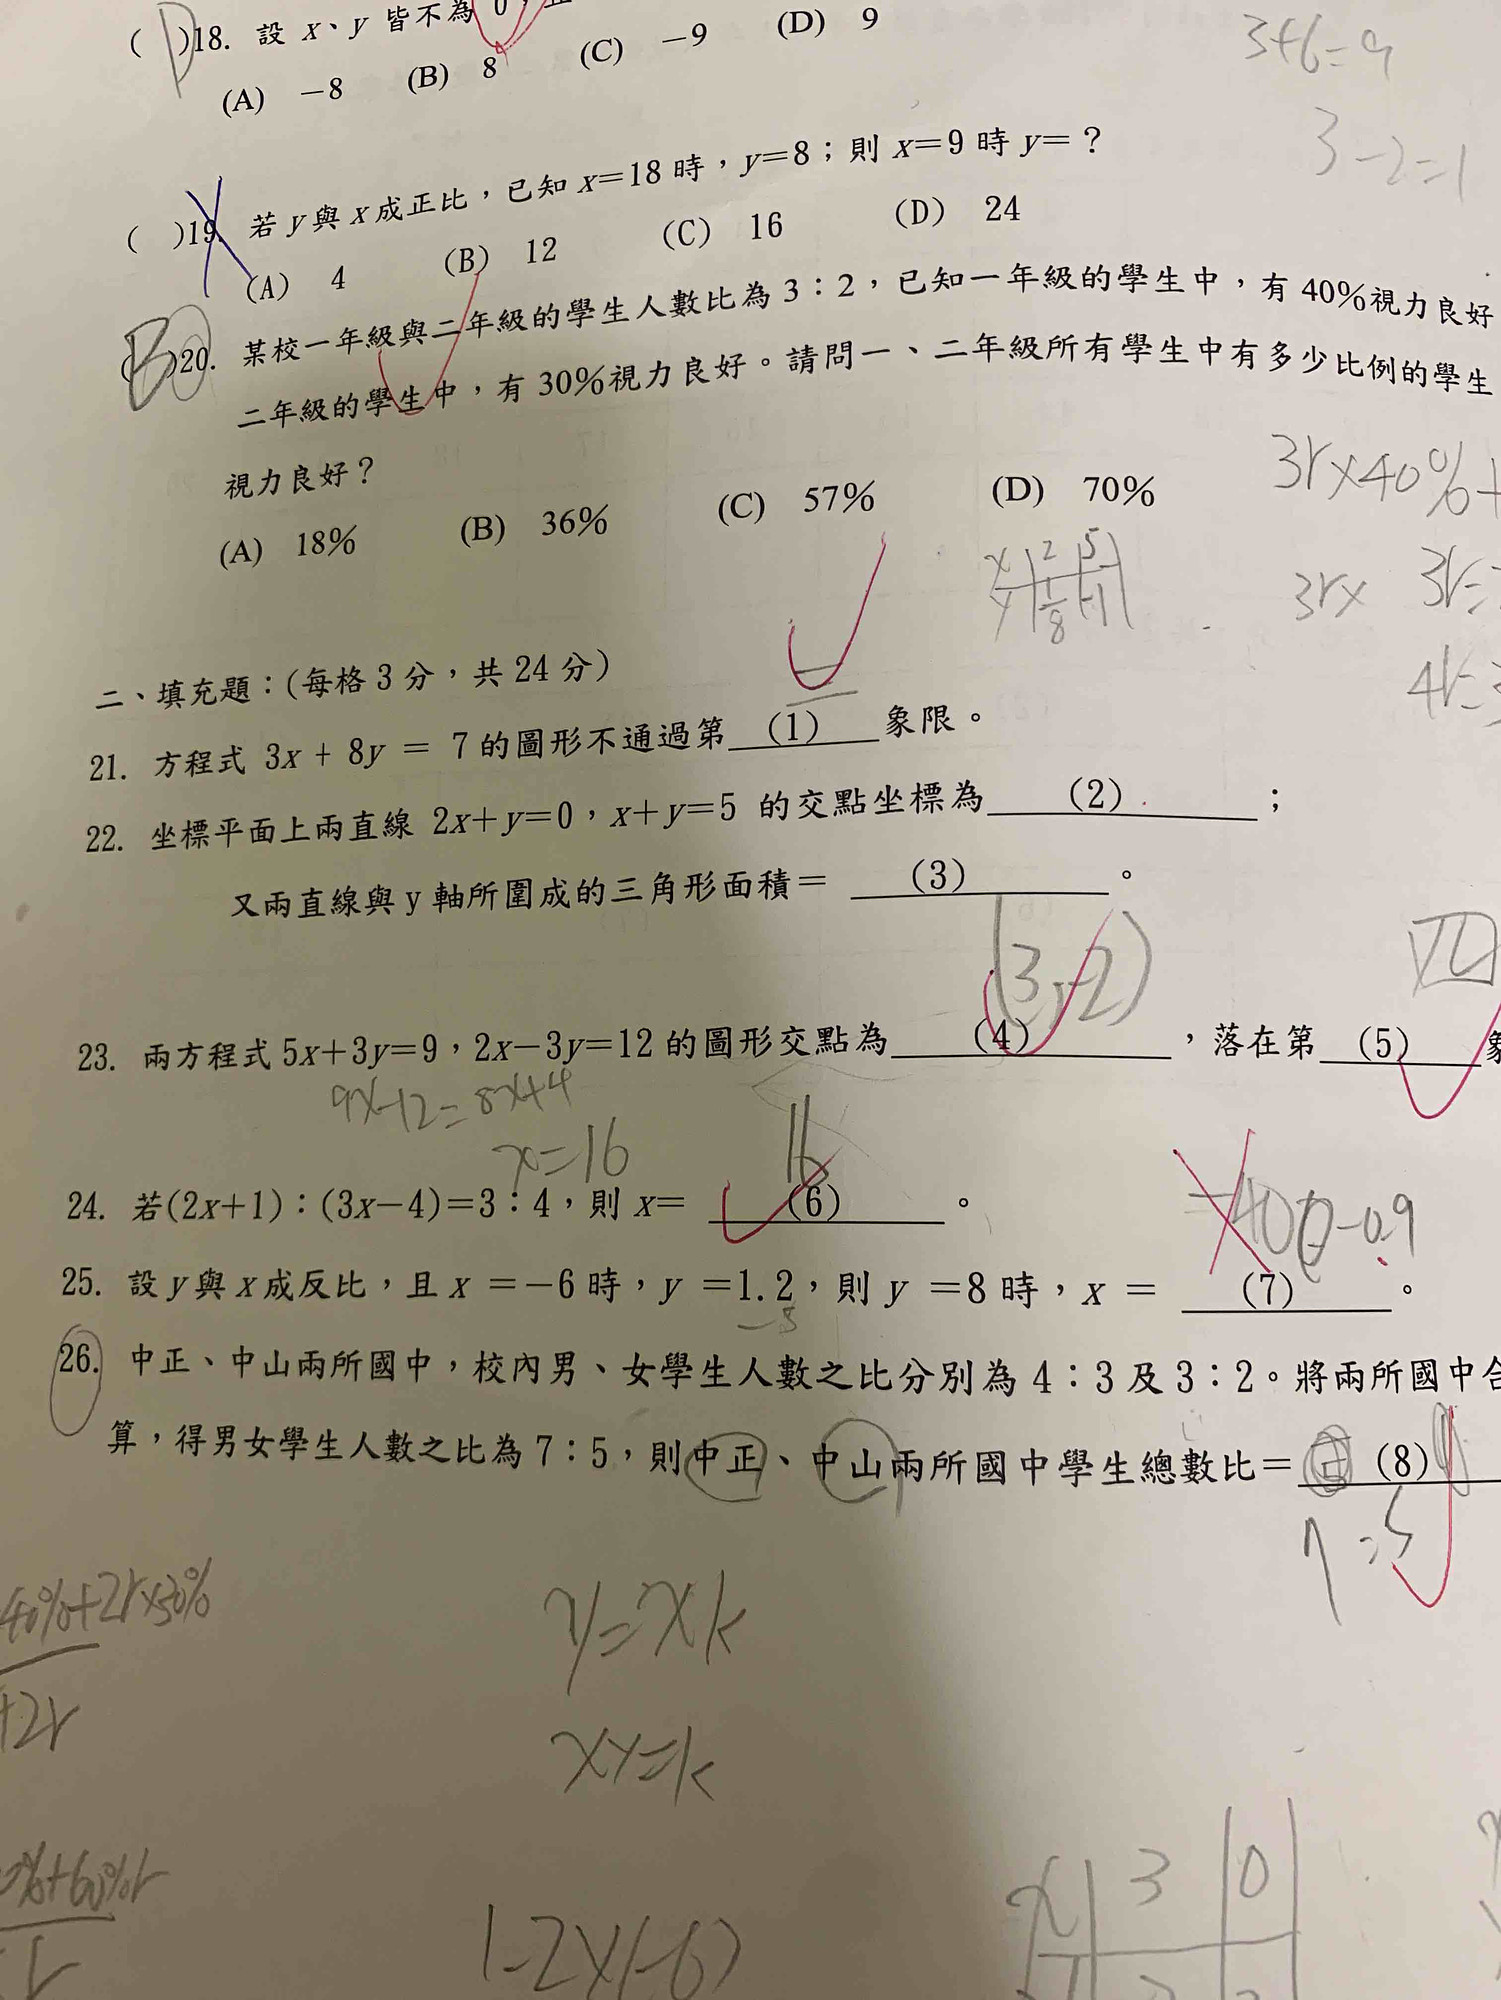 ( )18. 設 x、y 皆不為 0，
D
(A) －8 (B) 8 (C) －9 (D) 9
3+6=9
3-2=1
( )19. 若 y 與 x 成正比，已知 x＝18 時，y＝8；則 x＝9 時 y＝？
(A) 4 (B) 12 (C) 16 (D) 24
B
( )20. 某校一年級與二年級的學生人數比為 3：2，已知一年級的學生中，有 40％視力良好
二年級的學生中，有 30％視力良好。請問一、二年級所有學生中有多少比例的學生
視力良好？
3r×40%+
(A) 18％ (B) 36％ (C) 57％ (D) 70％
x 2 5
y 1/8 -1
3r×
3r=
4r=
二、填充題：(每格 3 分，共 24 分)
二
21. 方程式 3x + 8y = 7 的圖形不通過第 (1) 象限。
22. 坐標平面上兩直線 2x＋y＝0，x＋y＝5 的交點坐標為 (2) ；
又兩直線與 y 軸所圍成的三角形面積＝ (3) 。
(3,-2)
四
23. 兩方程式 5x＋3y＝9，2x－3y＝12 的圖形交點為 (4) ，落在第 (5) 象
9x-12=8x+4
x=16
16
24. 若(2x＋1)：(3x－4)＝3：4，則 x＝ (6) 。
-0.9
25. 設 y 與 x 成反比，且 x ＝－6 時，y ＝1.2，則 y ＝8 時，x ＝ (7) 。
26. 中正、中山兩所國中，校內男、女學生人數之比分別為 4：3 及 3：2。將兩所國中合
算，得男女學生人數之比為 7：5，則中正、中山兩所國中學生總數比＝ (8)
40%+2r×30%
+2r
y=xk
xy=k
x 3 0